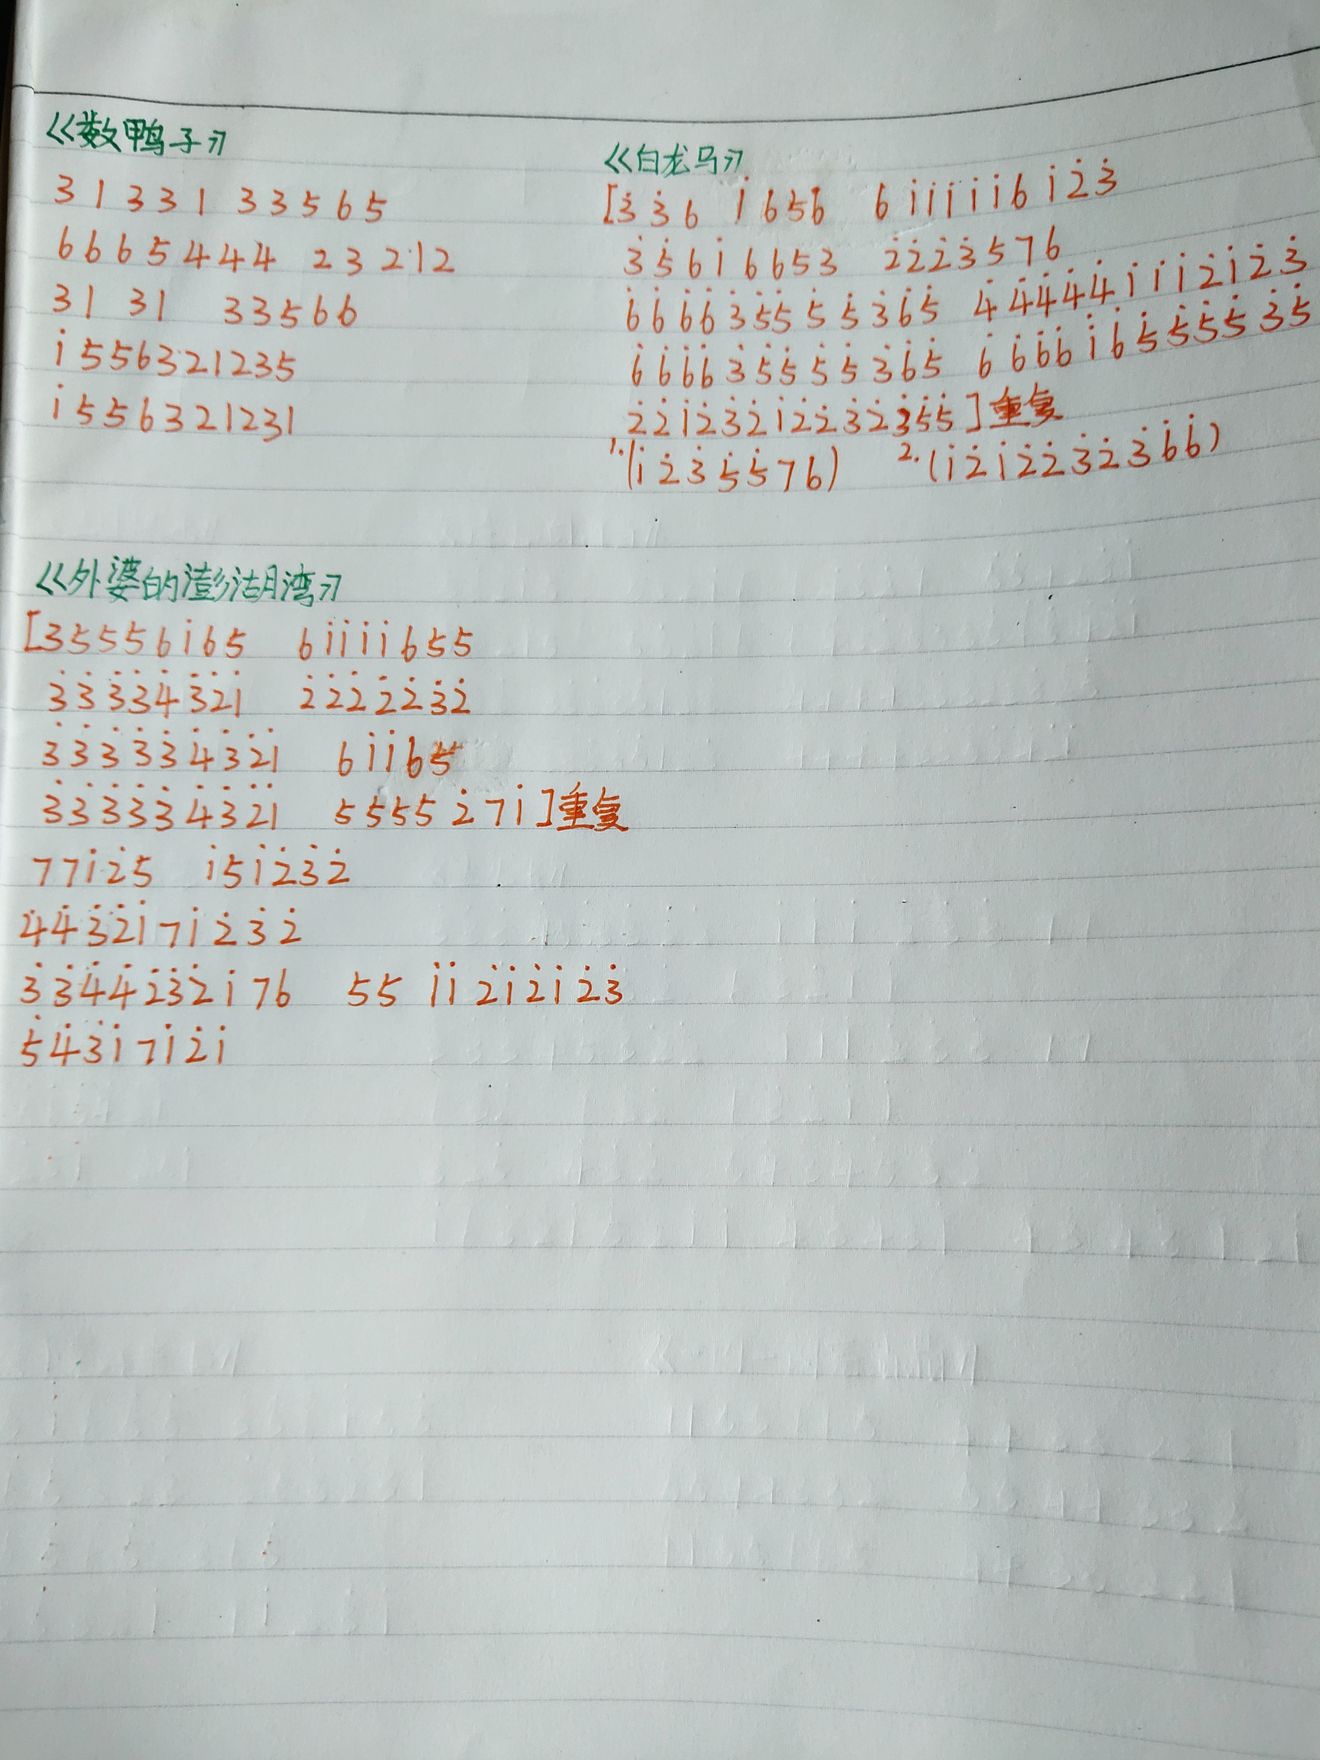 《数鸭子》
3 1 3 3 1 3 3 5 6 5
6 6 6 5 4 4 4 2 3 2 1 2
3 1 3 1 3 3 5 6 6
i̇ 5 5 6 3 2 1 2 3 5
i̇ 5 5 6 3 2 1 2 3 1
《白龙马》
[3̇ 3̇ 6 1̇ 6 5 6 6 1̇ 1̇ 1̇ 1̇ 1̇ 6 1̇ 2̇ 3̇
3̇ 5̇ 6 1̇ 6 6 5 3 2̇ 2̇ 2̇ 3̇ 5 7 6
6̇ 6̇ 6̇ 6̇ 3̇ 5̇ 5̇ 5̇ 5̇ 3̇ 6̇ 5̇ 4̇ 4̇ 4̇ 4̇ 4̇ 1̇ 1̇ 1̇ 2̇ 1̇ 2̇ 3̇
6̇ 6̇ 6̇ 6̇ 3̇ 5̇ 5̇ 5̇ 5̇ 3̇ 6̇ 5̇ 6̇ 6̇ 6̇ 6̇ 1̇ 6̇ 5̇ 5̇ 5̇ 5̇ 3̇ 5̇
2̇ 2̇ 1̇ 2̇ 3̇ 2̇ 1̇ 2̇ 2̇ 3̇ 2̇ 3̇ 5̇ 5̇ ]重复
1.(1̇ 2̇ 3̇ 5̇ 5̇ 7 6) 2.(1̇ 2̇ 1̇ 2̇ 2̇ 3̇ 2̇ 3̇ 6̇ 6̇)
《外婆的澎湖湾》
[3 5 5 5 6 1̇ 6 5 6 1̇ 1̇ 1̇ 1̇ 6 5 5
3̇ 3̇ 3̇ 3̇ 4̇ 3̇ 2̇ 1̇ 2̇ 2̇ 2̇ 2̇ 2̇ 3̇ 2̇
3̇ 3̇ 3̇ 3̇ 3̇ 4̇ 3̇ 2̇ 1̇ 6 1̇ 1̇ 6 5
3̇ 3̇ 3̇ 3̇ 3̇ 4̇ 3̇ 2̇ 1̇ 5 5 5 5 2̇ 7 1̇ ]重复
7 7 1̇ 2̇ 5 1̇ 5 1̇ 2̇ 3̇ 2̇
4̇ 4̇ 3̇ 2̇ 1̇ 7 1̇ 2̇ 3̇ 2̇
3̇ 3̇ 4̇ 4̇ 2̇ 3̇ 2̇ 1̇ 7 6 5 5 1̇ 1̇ 2̇ 1̇ 2̇ 1̇ 2̇ 3̇
5̇ 4̇ 3̇ 1̇ 7 1̇ 2̇ 1̇